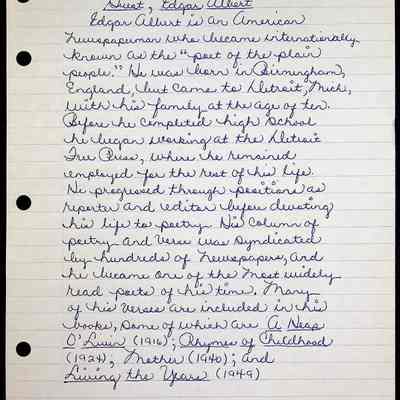 Guest, Edgar Albert
Edgar Albert is an American
newspaperman who became internationally
known as the "poet of the plain
people." He was born in Birmingham,
England, but came to Detroit, Mich,
with his family at the age of ten.
Before he completed high school
he began working at the Detroit
Free Press, where he remained
employed for the rest of his life.
He progressed through positions as
reporter and editor before devoting
his life to poetry. His column of
poetry and verse was syndicated
by hundreds of newspapers, and
he became one of the most widely
read poets of his time. Many
of his verses are included in his
books, some of which are A Heap
O'Livin (1916); Rhymes of Childhood
(1924); Mother (1940); and
Living the Years (1949)